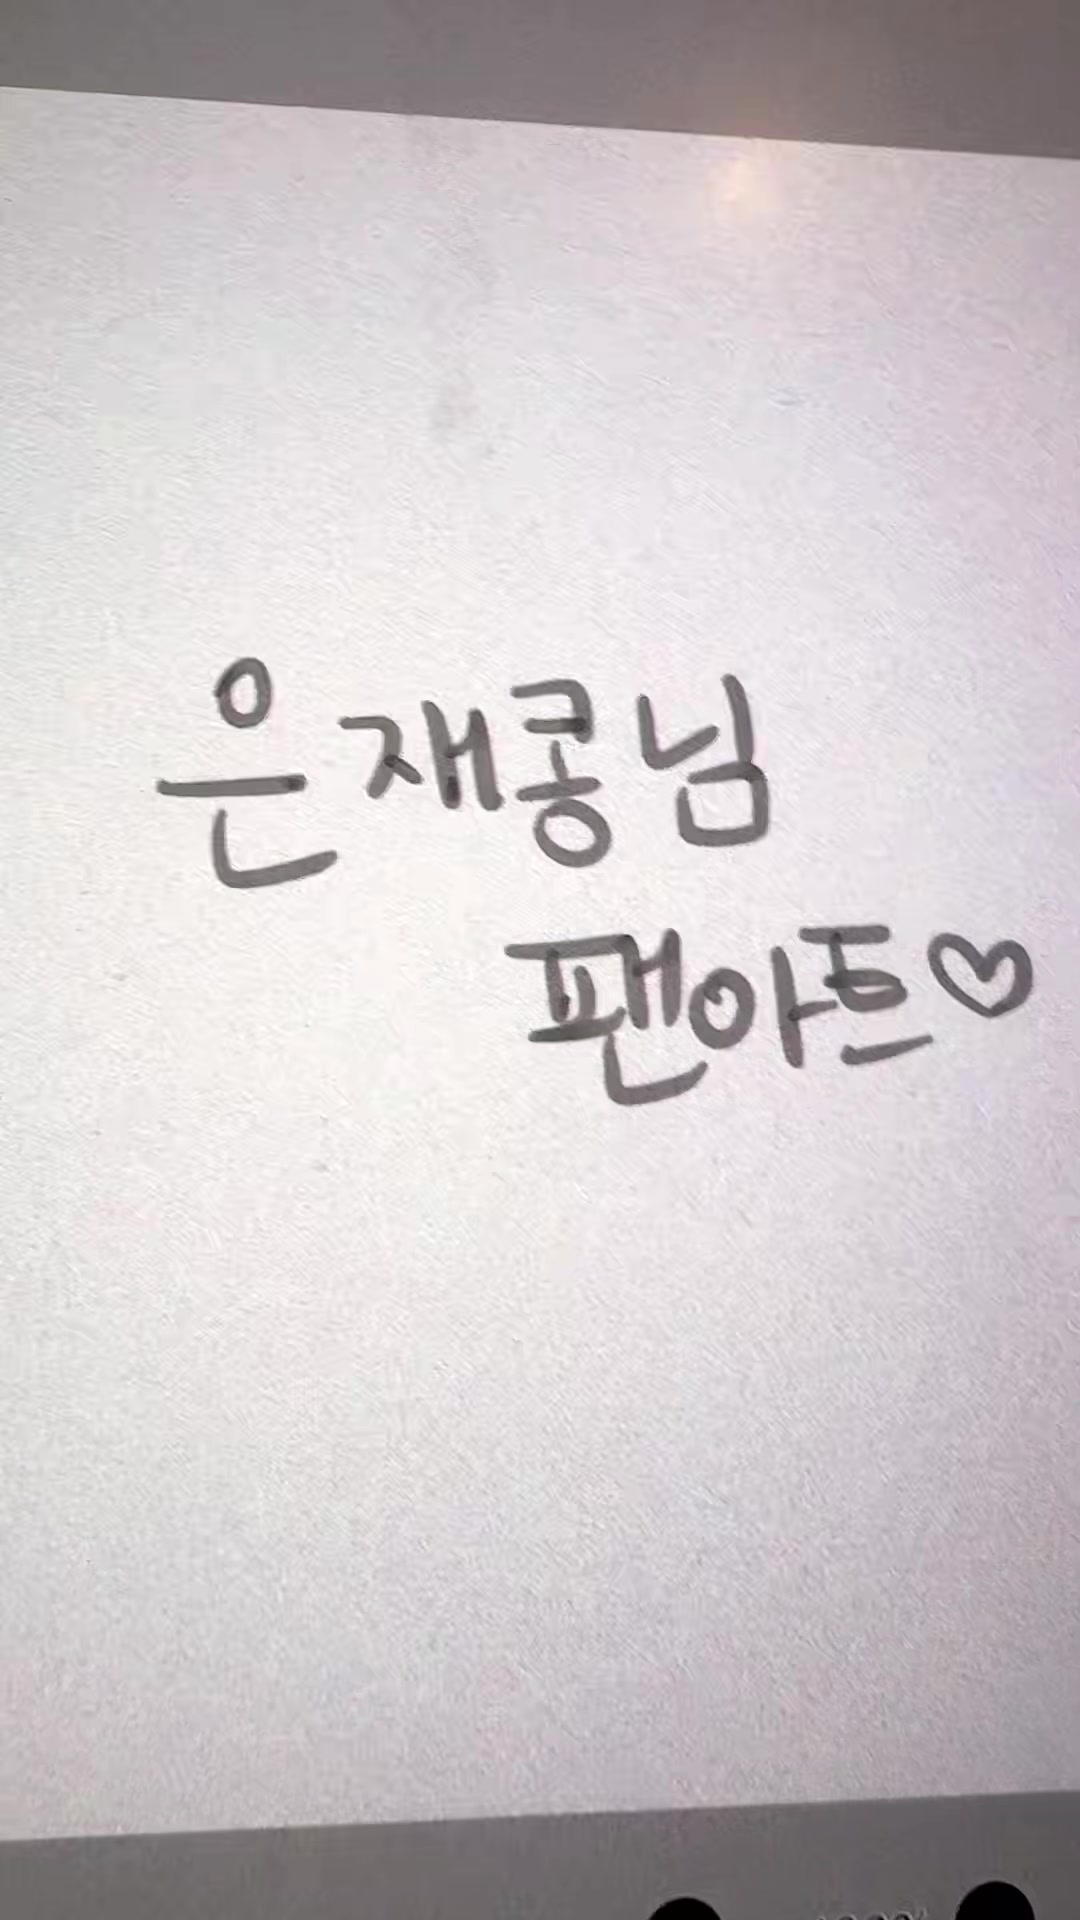 은재콩님
팬아트♡